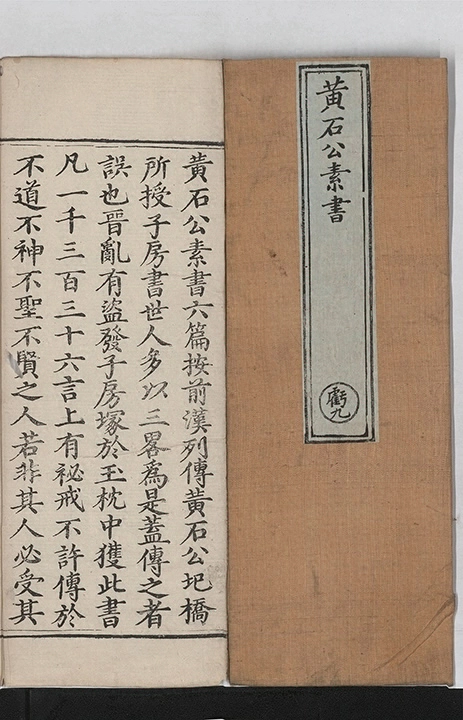 黃石公素書
虧九
黃石公素書六篇按前漢列傳黃石公圯橋
所授子房書世人多以三畧爲是蓋傳之者
誤也晉亂有盜發子房塚於玉枕中獲此書
凡一千三百三十六言上有祕戒不許傳於
不道不神不聖不賢之人若非其人必受其